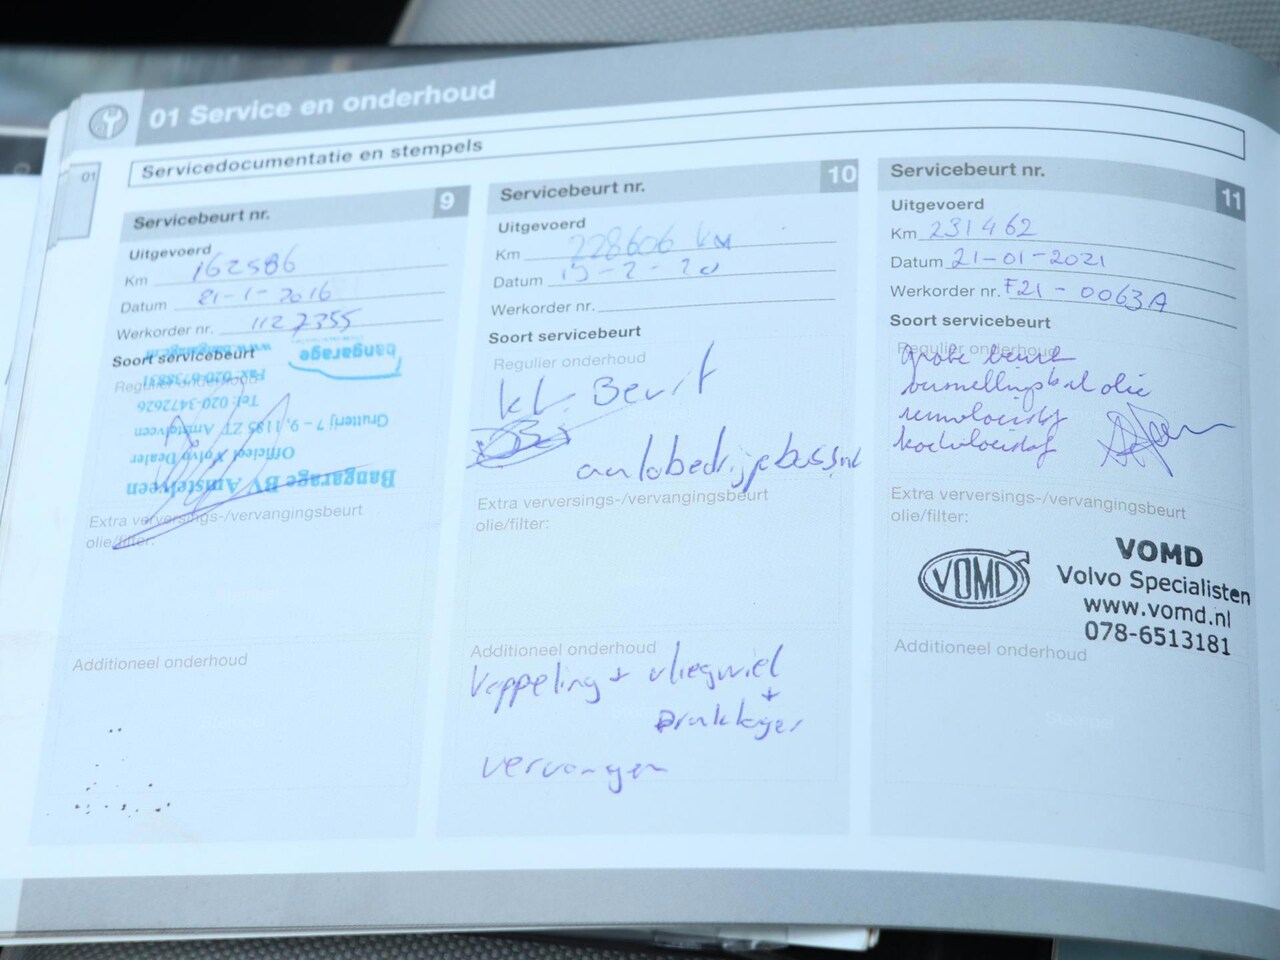 01 Service en onderhoud
01
Servicedocumentatie en stempels
Servicebeurt nr. 9
Uitgevoerd
Km 162586
Datum 21-1-2016
Werkorder nr. 1127355
Soort servicebeurt
Regulier onderhoud
Bangarage BV Amstelveen
Officieel Volvo Dealer
Grutterij 7 - 9, 1185 ZT Amstelveen
Tel: 020-3472626
Fax: 020-6738831
www.bangarage.nl
bangarage
Extra verversings-/vervangingsbeurt
olie/filter:
Additioneel onderhoud
Servicebeurt nr. 10
Uitgevoerd
Km 228606 km
Datum 19-2-20
Werkorder nr.
Soort servicebeurt
Regulier onderhoud
kl. Beurt
Extra verversings-/vervangingsbeurt
olie/filter:
Additioneel onderhoud
Koppeling + vliegwiel
+
Druklager
vervangen
Servicebeurt nr. 11
Uitgevoerd
Km 231462
Datum 21-01-2021
Werkorder nr. F21-0063A
Soort servicebeurt
Regulier onderhoud
grote beurt
versnellingsbak olie
remvloeistof
koelvloeistof
Extra verversings-/vervangingsbeurt
olie/filter:
VOMD
VOMD
Volvo Specialisten
www.vomd.nl
078-6513181
Additioneel onderhoud